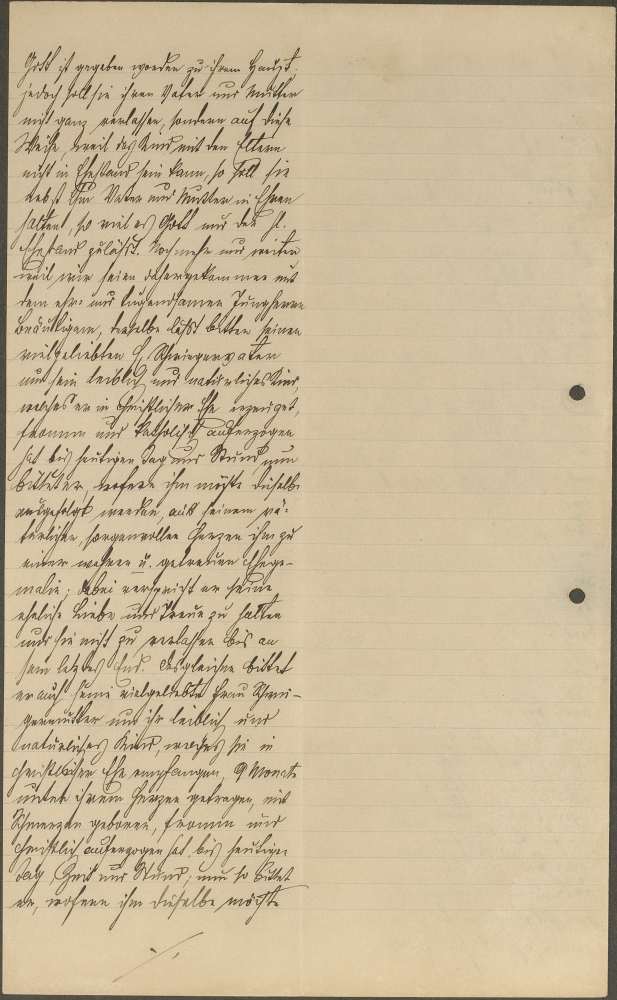 Gott ist gegeben worden zu ihrem Haupt,
jedoch soll sie ihren Vater und Mutter
nicht ganz verlassen, sondern auf diese
Weise, weil das Kind mit den Eltern
nicht in Ehestand sein kann, so soll sie
nebst ihm Vater und Mutter in Ehren
halten, so viel es Gott und der hl.
Ehestand zuläßt. Noch mehr und weiter
weil wir seien dahergekommen mit
dem ehr= und tugendsamen Jungherrn
Bräutigam, derselbe läßt bitten seinen
vielgeliebten H. Schwiegervater
um sein leiblich und natürliches Kind,
welches er in christlicher Ehe erzeuget,
fromm und katholisch auferzogen
hat bis heutigen Tag und Stund nun
bittet er, wofern ihm möchte dieselbe
ausgefolgt werden, aus seinem vä=
terlichen, sorgenvollen Herzen ihm zu
einer wahren u. getreuen Ehege=
malin; dabei verspricht er seine
eheliche Liebe und Treue zu halten
und sie nicht zu verlassen bis an
sein letztes End. Desgleichen bittet
er auch seine vielgeliebte Frau Schwie=
germutter um ihr leiblich und
natürliches Kind, welches sie in
christlicher Ehe empfangen, 9 Monate
unter ihrem Herzen getragen, mit
Schmerzen geboren, fromm und
christlich auferzogen hat bis heutigen
Tag, Zeit und Stund; nun so bittet
er, wofern ihm dieselbe möchte
./.